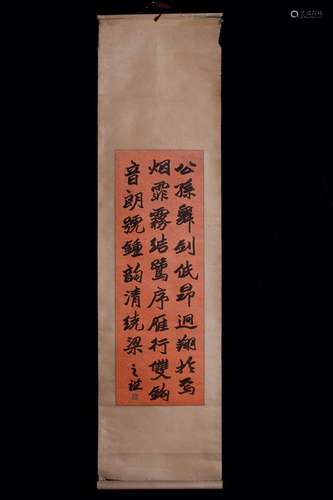 公孫舞剑低昂迴翔於焉
烟霏霧結鷺序雁行雙鈎
音朗號鍾韵清繞梁 之謙